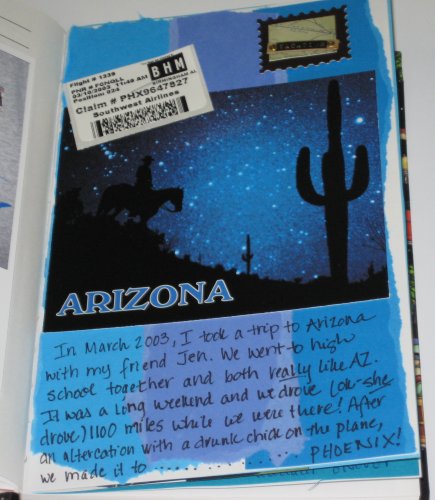 Flight # 1339
PNR # FCNGLL
03/10/2003 11:40 AM
Position: 024
BHM
BIRMINGHAM, AL
Claim # PHX9647827
Southwest Airlines
ARIZONA
In March 2003, I took a trip to Arizona
with my friend Jen. We went to high
school together and both really like AZ.
It was a long weekend and we drove (ok-she
drove) 1100 miles while we were there! After
an altercation with a drunk chick on the plane,
we made it to ........... PHOENIX!